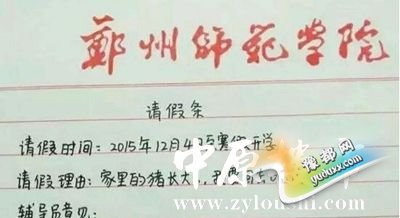 郑州师范学院
请假条
请假时间：2015年12月4号至寒假开学
请假理由：家里的猪长大，
辅导员意见：
中原
豫都网
yuduxx.com
www.zyloushi.com